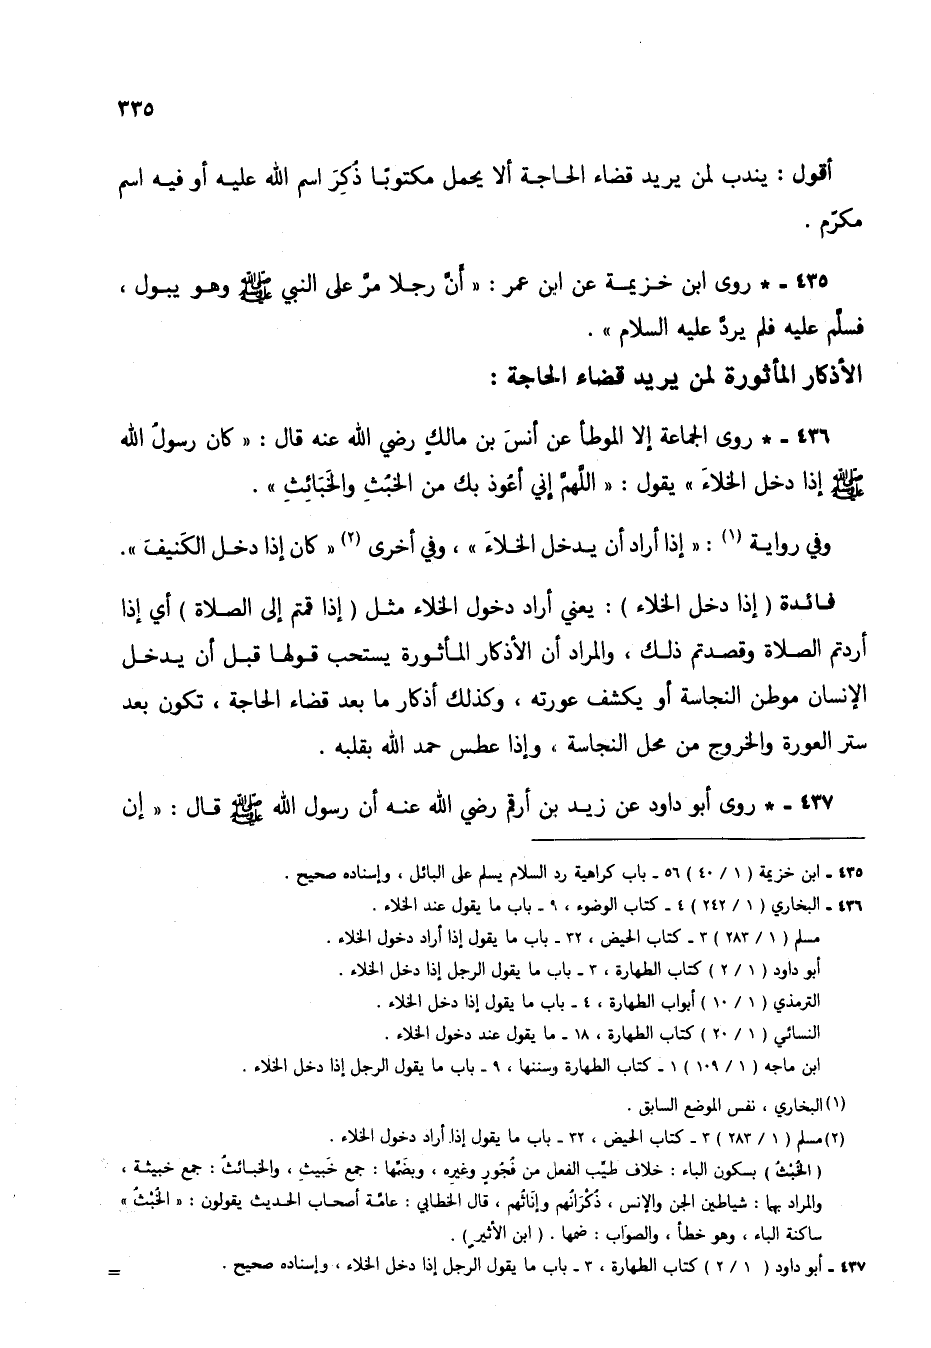 ٣٣٥
أقول : يندب لمن يريد قضاء الحاجة ألا يحمل مكتوبًا ذُكِرَ اسم الله عليه أو فيه اسم
مكرّم .
٤٣٥ - * روى ابن خزيمة عن ابن عمر : « أَنَّ رجلا مرَّ على النبي ﷺ وهو يبول ،
فسلَّم عليه فلم يردَّ عليه السلام » .
الأذكار المأثورة لمن يريد قضاء الحاجة :
٤٣٦ - * روى الجماعة إلا الموطأ عن أنسَ بن مالكٍ رضي الله عنه قال : « كان رسولُ الله
ﷺ إذا دخل الخلاءَ » يقول : « اللَّهمَّ إني أعوذ بك من الخبْثِ والخَبَائِثِ » .
وفي رواية (١) : « إذا أراد أن يدخل الخلاءَ » ، وفي أخرى (٢) « كان إذا دخل الكَنيفَ ».
فائدة ( إذا دخل الخلاء ) : يعني أراد دخول الخلاء مثل ( إذا قمتم إلى الصلاة ) أي إذا
أردتم الصلاة وقصدتم ذلك ، والمراد أن الأذكار المأثورة يستحب قولها قبل أن يدخل
الإنسان موطن النجاسة أو يكشف عورته ، وكذلك أذكار ما بعد قضاء الحاجة ، تكون بعد
ستر العورة والخروج من محل النجاسة ، وإذا عطس حمد الله بقلبه .
٤٣٧ - * روى أبو داود عن زيد بن أرقم رضي الله عنه أن رسول الله ﷺ قال : « إن
٤٣٥ - ابن خزيمة ( ١ / ٤٠ ) ٥٦ - باب كراهية رد السلام يسلم على البائل ، وإسناده صحيح .
٤٣٦ - البخاري ( ١ / ٢٤٢ ) ٤ - كتاب الوضوء ، ٩ - باب ما يقول عند الخلاء .
مسلم ( ١ / ٢٨٣ ) ٣ - كتاب الحيض ، ٣٢ - باب ما يقول إذا أراد دخول الخلاء .
أبو داود ( ١ / ٢ ) كتاب الطهارة ، ٣ - باب ما يقول الرجل إذا دخل الخلاء .
الترمذي ( ١ / ١٠ ) أبواب الطهارة ، ٤ - باب ما يقول إذا دخل الخلاء .
النسائي ( ١ / ٢٠ ) كتاب الطهارة ، ١٨ - ما يقول عند دخول الخلاء .
ابن ماجه ( ١ / ١٠٩ ) ١ - كتاب الطهارة وسننها ، ٩ - باب ما يقول الرجل إذا دخل الخلاء .
(١) البخاري ، نفس الموضع السابق .
(٢) مسلم ( ١ / ٢٨٣ ) ٣ - كتاب الحيض ، ٣٢ - باب ما يقول إذا أراد دخول الخلاء .
( الخُبْثُ ) بسكون الباء : خلاف طيِّب الفعل من فُجُور وغيره ، وبضمِّها : جمع خَبيثٍ ، والخبائثُ : جمع خبيثة ،
والمراد بها : شياطين الجن والإنس ، ذُكْرَانُهم وإنَاثُهم ، قال الخطابي : عامَّة أصحاب الحديث يقولون : « الخُبْثُ »
ساكنة الباء ، وهو خطأ ، والصوَاب : ضمها . ( ابن الأثير ) .
٤٣٧ - أبو داود ( ١ / ٢ ) كتاب الطهارة ، ٣ - باب ما يقول الرجل إذا دخل الخلاء ، وإسناده صحيح .
=